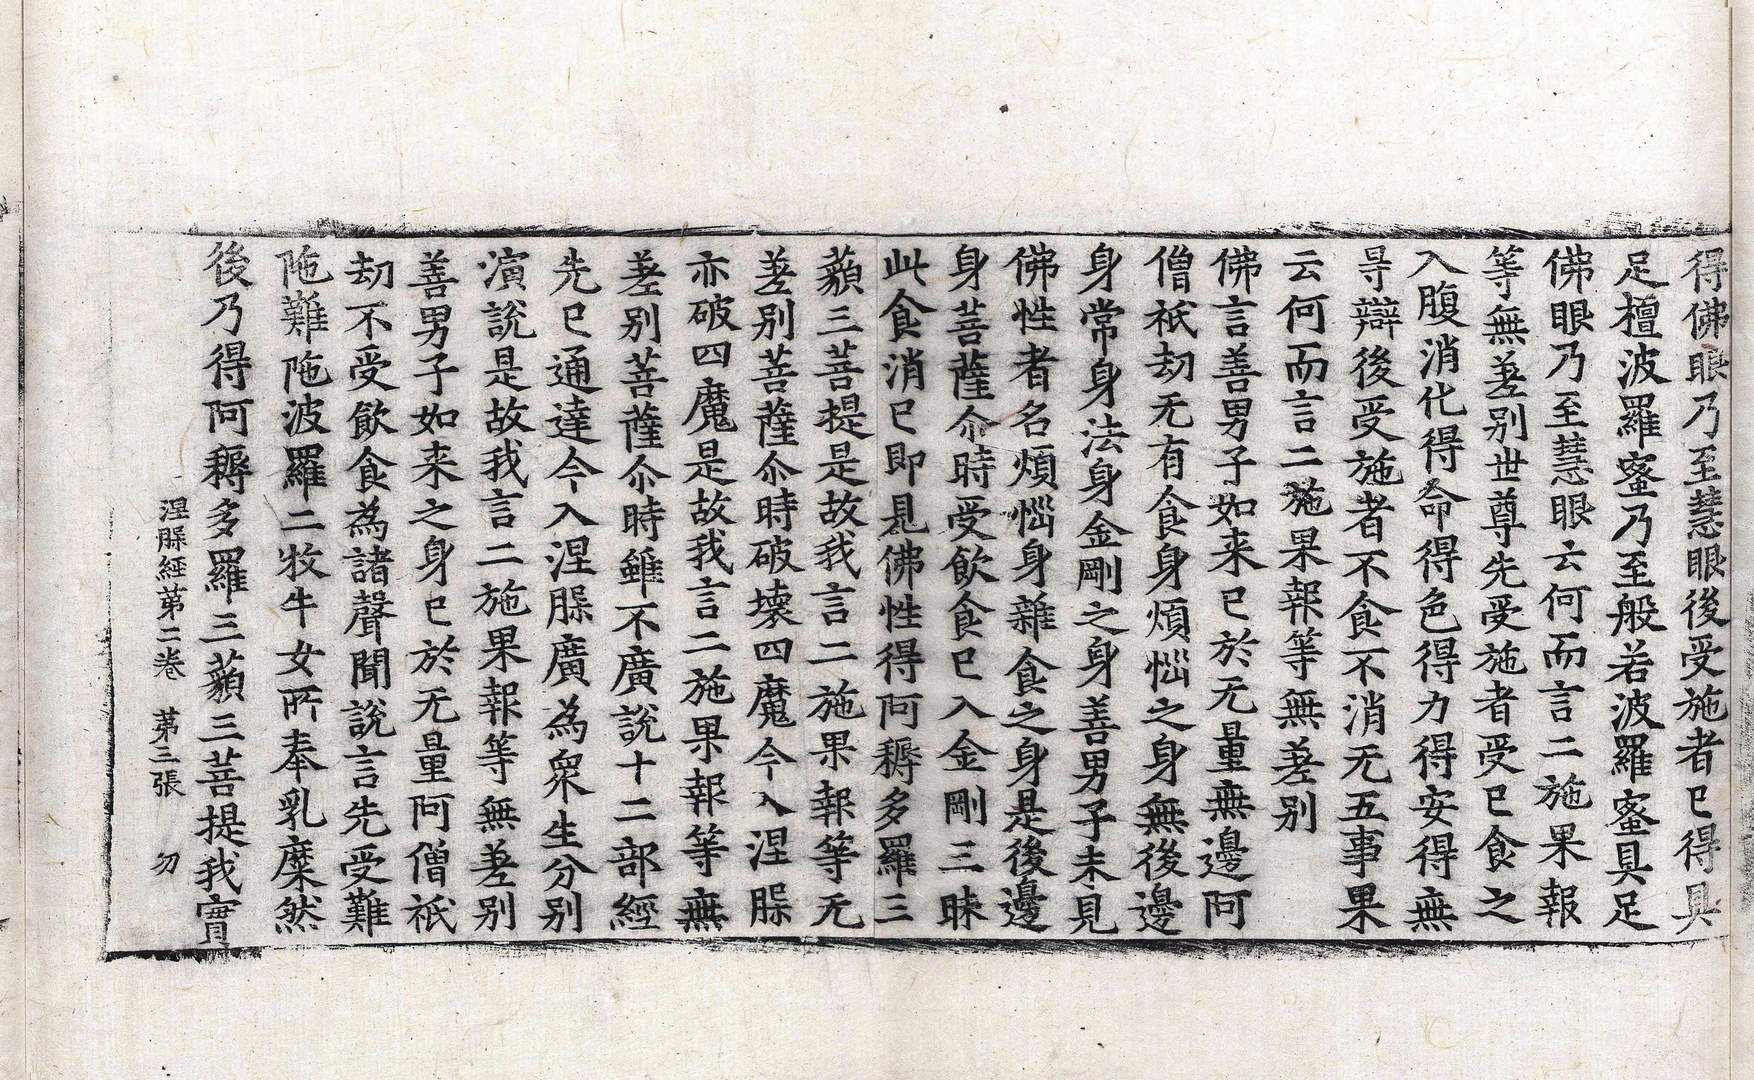 得佛眼乃至慧眼後受施者已得具
足檀波羅蜜乃至般若波羅蜜具足
佛眼乃至慧眼云何而言二施果報
等無差别世尊先受施者受已食之
入腹消化得命得色得力得安得無
㝵辯後受施者不食不消无五事果
云何而言二施果報等無差别
佛言善男子如来已於无量無邊阿
僧祇劫无有食身煩惱之身無後邊
身常身法身金剛之身善男子未見
佛性者名煩惱身雜食之身是後邊
身菩薩尒時受飲食已入金剛三昧
此食消已即見佛性得阿耨多羅三
藐三菩提是故我言二施果報等无
差别菩薩尒時破壞四魔今入涅槃
亦破四魔是故我言二施果報等無
差别菩薩尒時雖不廣說十二部經
先已通達今入涅槃廣為衆生分别
演說是故我言二施果報等無差别
善男子如来之身已於无量阿僧祇
劫不受飲食為諸聲聞說言先受難
陁難陁波羅二牧牛女所奉乳糜然
後乃得阿耨多羅三藐三菩提我實
涅槃経第二卷 第三張 勿